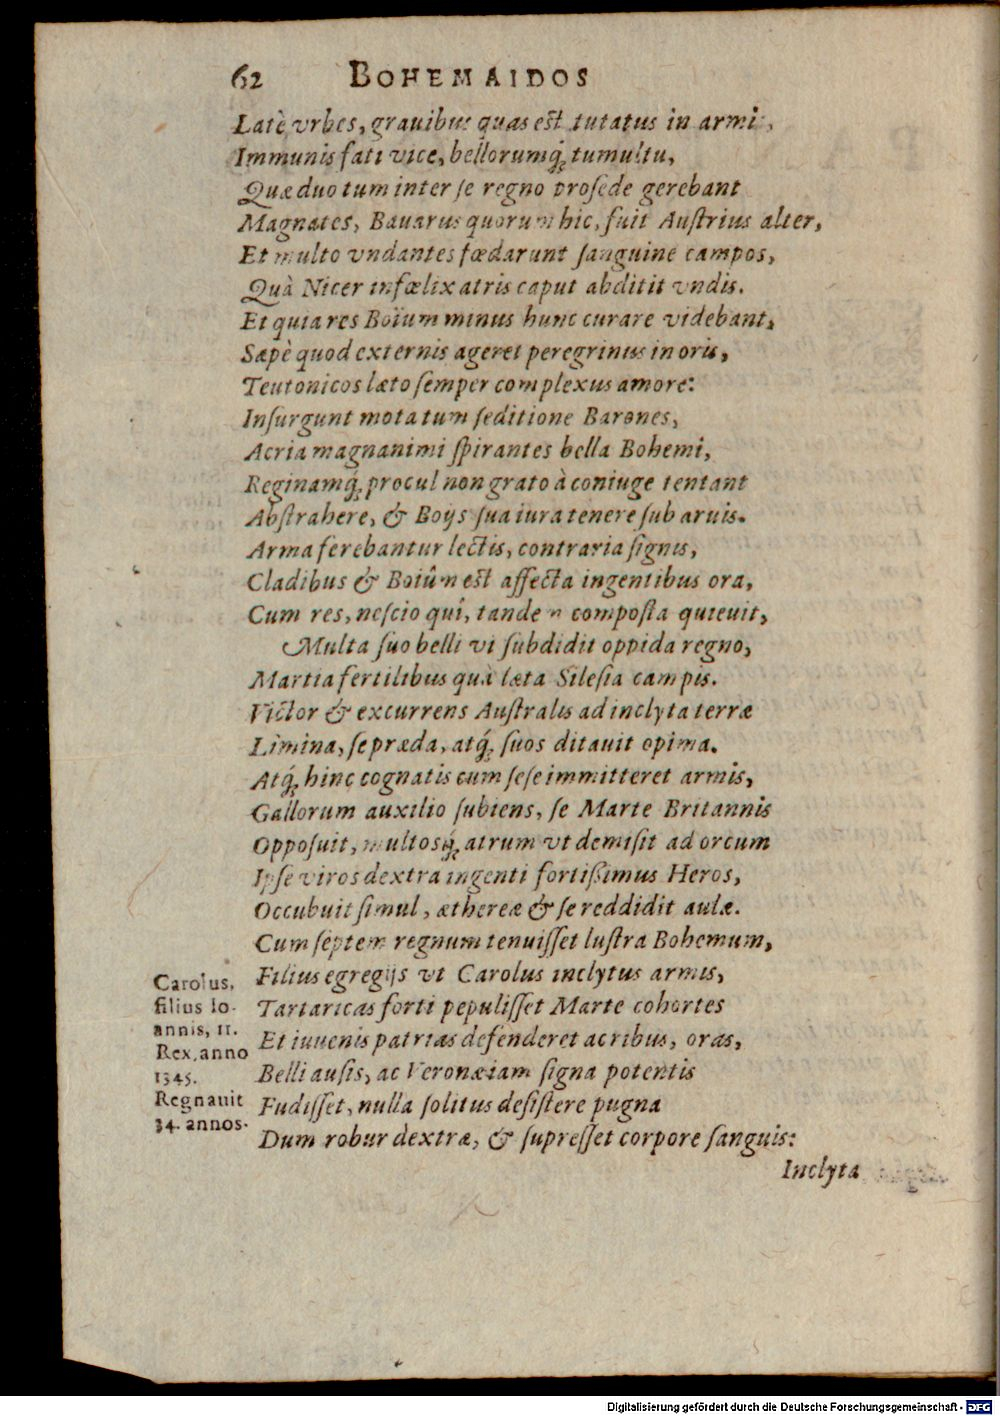 62 BOHEMAIDOS
Latè vrbes, grauibus quas est tutatus in armis,
Immunis fati vice, bellorumq́; tumultu,
Quæ duo tum inter se regno pro sede gerebant
Magnates, Bauarus quorum hic, fuit Austrius alter,
Et multo vndantes fœdarunt sanguine campos,
Quà Nicer infœlix atris caput abditit vndis.
Et quia res Boïum minus hunc curare videbant,
Sæpè quod externis ageret peregrinus in oris,
Teutonicos læto semper complexus amore:
Insurgunt mota tum seditione Barones,
Acria magnanimi spirantes bella Bohemi,
Reginamq́; procul non grato à coniuge tentant
Abstrahere, & Boijs sua iura tenere sub aruis.
Arma ferebantur lectis, contraria signis,
Cladibus & Boiûm est affecta ingentibus ora,
Cum res, nescio quî, tandem composta quieuit,
Multa suo belli vi subdidit oppida regno,
Martia fertilibus quà læta Silesia campis.
Victor & excurrens Australis ad inclyta terræ
Limina, se præda, atq́; suos ditauit opima.
Atq́; hinc cognatis cum sese immitteret armis,
Gallorum auxilio subiens, se Marte Britannis
Opposuit, multosq́; atrum vt demisit ad orcum
Ipse viros dextra ingenti fortissimus Heros,
Occubuit simul, æthereæ & se reddidit aulæ.
Cum septem regnum tenuisset lustra Bohemum,
Filius egregijs vt Carolus inclytus armis,
Tartaricas forti pepulisset Marte cohortes
Et iuuenis patrias defenderet acribus, oras,
Belli ausis, ac Veronæ iam signa potentis
Fudisset, nulla solitus desistere pugna
Dum robur dextræ, & supresset corpore sanguis:
Carolus,
filius Io-
annis, 11.
Rex, anno
1345.
Regnauit
34. annos.
Inclyta
Digitalisierung gefördert durch die Deutsche Forschungsgemeinschaft - DFG